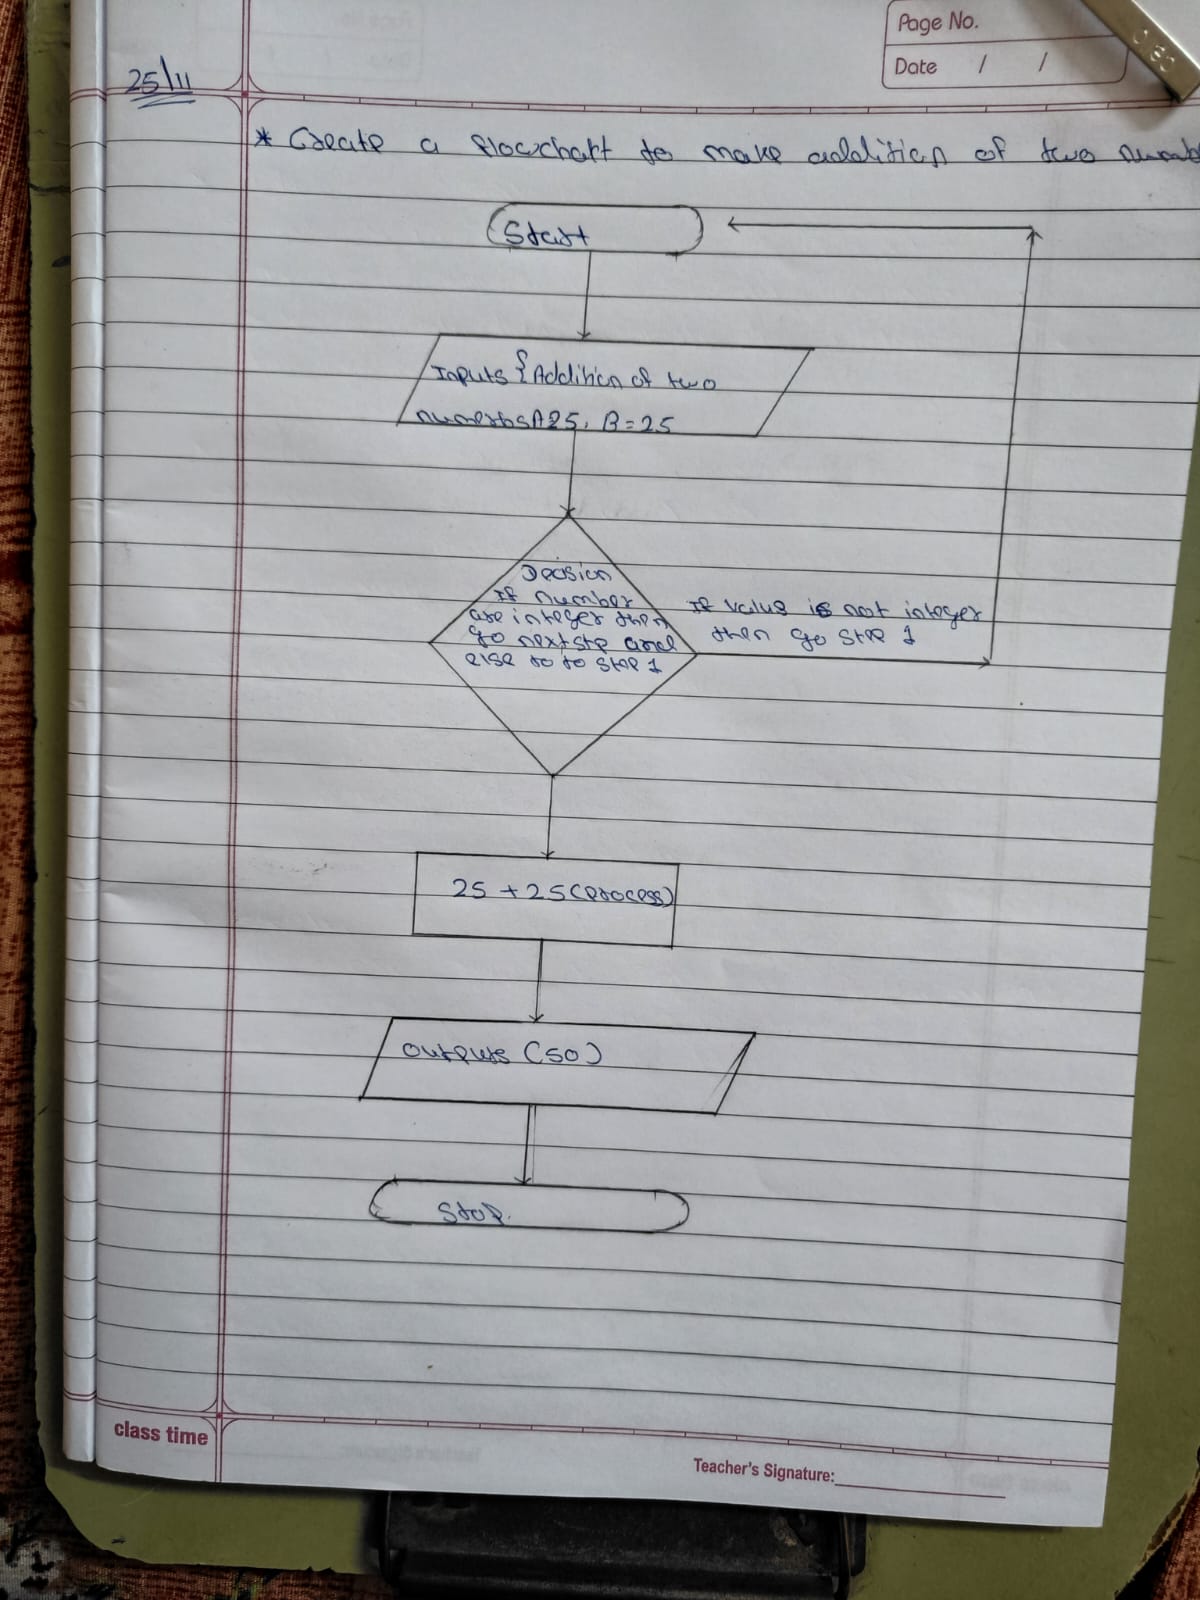 Page No.
Date / /
25/11
* Create a flowchart to make addition of two
Start
Inputs { Addition of two
numerbs A25, B=25
Decision
If number
are integer then
go next ste and
else to to step 1
If value is not integer
then go step 1
25 + 25 (process)
outputs (50)
Stop.
class time
Teacher's Signature: